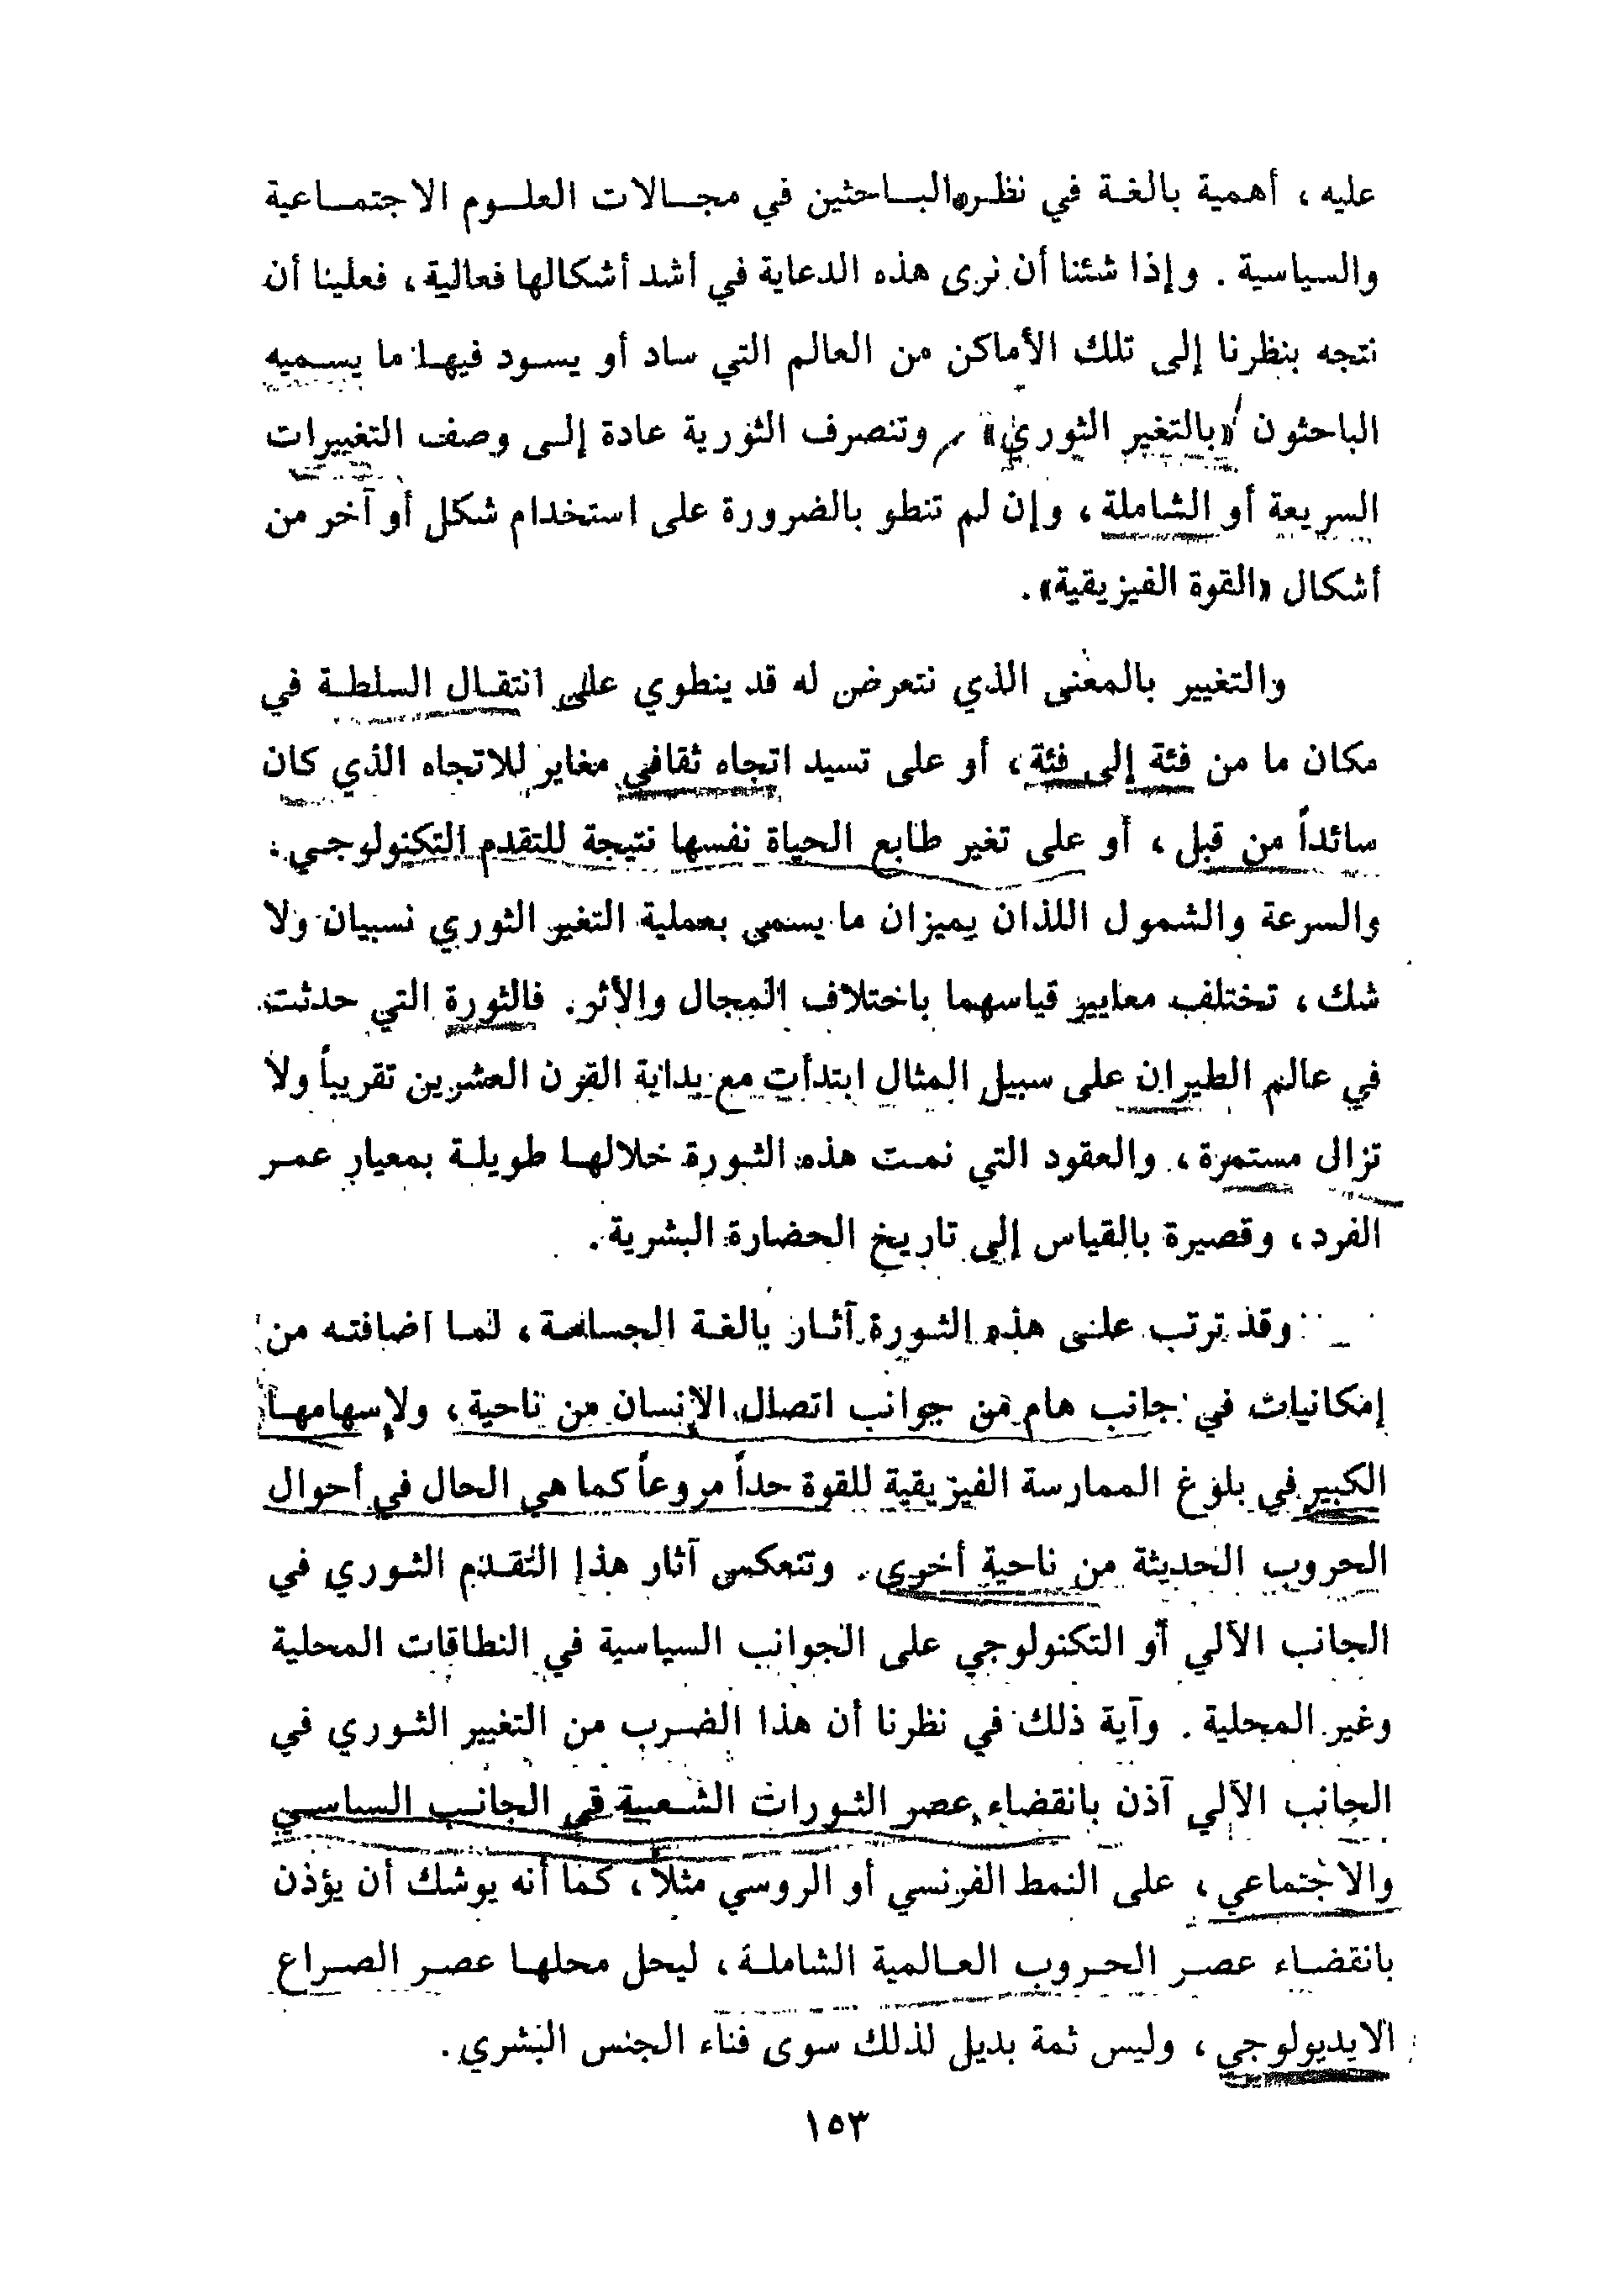 عليه ، أهمية بالغة في نظر الباحثين في مجالات العلوم الاجتماعية
والسياسية . وإذا شئنا أن نرى هذه الدعاية في أشد أشكالها فعالية ، فعلينا أن
نتجه بنظرنا إلى تلك الأماكن من العالم التي ساد أو يسود فيها ما يسميه
الباحثون «بالتغير الثوري» وتنصرف الثورية عادة إلى وصف التغييرات
السريعة أو الشاملة ، وإن لم تنطو بالضرورة على استخدام شكل أو آخر من
أشكال «القوة الفيزيقية» .
والتغيير بالمعنى الذي نتعرض له قد ينطوي على انتقال السلطة في
مكان ما من فئة إلى فئة ، أو على تسيد اتجاه ثقافي مغاير للاتجاه الذي كان
سائداً من قبل ، أو على تغير طابع الحياة نفسها نتيجة للتقدم التكنولوجي .
والسرعة والشمول اللذان يميزان ما يسمى بعملية التغير الثوري نسبيان ولا
شك ، تختلف معايير قياسهما باختلاف المجال والأثر . فالثورة التي حدثت
في عالم الطيران على سبيل المثال ابتدأت مع بداية القرن العشرين تقريباً ولا
تزال مستمرة ، والعقود التي نمت هذه الثورة خلالها طويلة بمعيار عمر
الفرد ، وقصيرة بالقياس إلى تاريخ الحضارة البشرية .
وقد ترتب على هذه الثورة آثار بالغة الجسامة ، لما اضافته من
إمكانيات في جانب هام من جوانب اتصال الإنسان من ناحية ، ولإسهامها
الكبير في بلوغ الممارسة الفيزيقية للقوة حداً مروعاً كما هي الحال في أحوال
الحروب الحديثة من ناحية أخرى . وتنعكس آثار هذا التقدم الثوري في
الجانب الآلي أو التكنولوجي على الجوانب السياسية في النطاقات المحلية
وغير المحلية . وآية ذلك في نظرنا أن هذا الضرب من التغيير الثوري في
الجانب الآلي آذن بانقضاء عصر الثورات الشعبية في الجانب السياسي
والاجتماعي ، على النمط الفرنسي أو الروسي مثلاً ، كما أنه يوشك أن يؤذن
بانقضاء عصر الحروب العالمية الشاملة ، ليحل محلها عصر الصراع
الايديولوجي ، وليس ثمة بديل لذلك سوى فناء الجنس البشري .
١٥٣